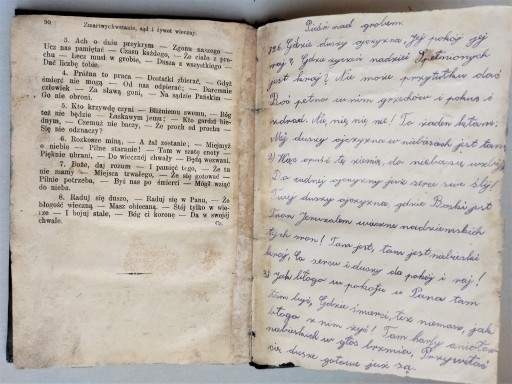 90 Zmartwychwstanie, sąd i żywot wieczny.
3. Ach o dniu przykrym — Zgonu naszego —
Ucz nas pamiętać — Czasu każdego, — Że ciało z pro-
chu — Lecz musi w grobie, — Dusza a wszystkiego —
Dać liczbę tobie.
4. Próżna to praca — Dostatki zbierać, — Gdyż
śmierć nie mogą — Od nas odpierać; — Daremnie
człowiek — Za sławą goni, — Na sądzie Pańskim —
Go nie obroni.
5. Kto krzywdę czyni — Bliźniemu swemu, — Bóg
też nie będzie — Łaskawym jemu; — Kto gardzi bie-
dnym, — Czemuż nie baczy, — Że proch od prochu —
Się nie odznaczy?
6. Rozkosze miną, — A żal zostanie; — Miejmyż
o niebie — Pilne staranie! — Tam w szatę cnoty —
Pięknie ubrani, — Do wiecznej chwały — Będą wezwani.
7. Boże, daj rozum — I pamięć tego, — Że tu
nie mamy — Miejsca trwałego, — Że się gotować —
Pilnie potrzeba, — Byś nas po śmierci — Mógł wziąć
do nieba.
8. Raduj się duszo, — Raduj się w Panu, — Że
błogość wieczną — Masz obiecaną. — Stój tylko w wie-
rze — I bojuj stale, — Bóg ci koronę — Da w swojej
chwale.
Pieśń nad grobem.
Gdzie duszy ojczyzna, Jej pokój jej
raj? Gdzie życzeń nadziei Spełnionych
jest kraj? Nie może przytułku dać
Boś pełna w nim grzechów i pokus i
zdrad. Nie, nie, nie, nie! To żaden
Mej duszy ojczyzna w niebiosach jest tam
2) Więc opuść tę ziemię, do nieba się wzbij
Do cudnej ojczyzny już serce swe ślij!
Twej duszy ojczyzna gdzie Boski jest
tron Jeruzalem wieczne nadziemskich
tych stron! Tam jest, tam jest niebieski
kraj, Co sercu i duszy da pokój i raj!
3) Jak błogo w pokoju u Pana tam
być, Gdzie śmierci, też niemasz, jak
błogo z nim żyć! Tam harfy aniołów
niebieskich w głos brzmią, Przywitać
cię dusze gotowe już są.